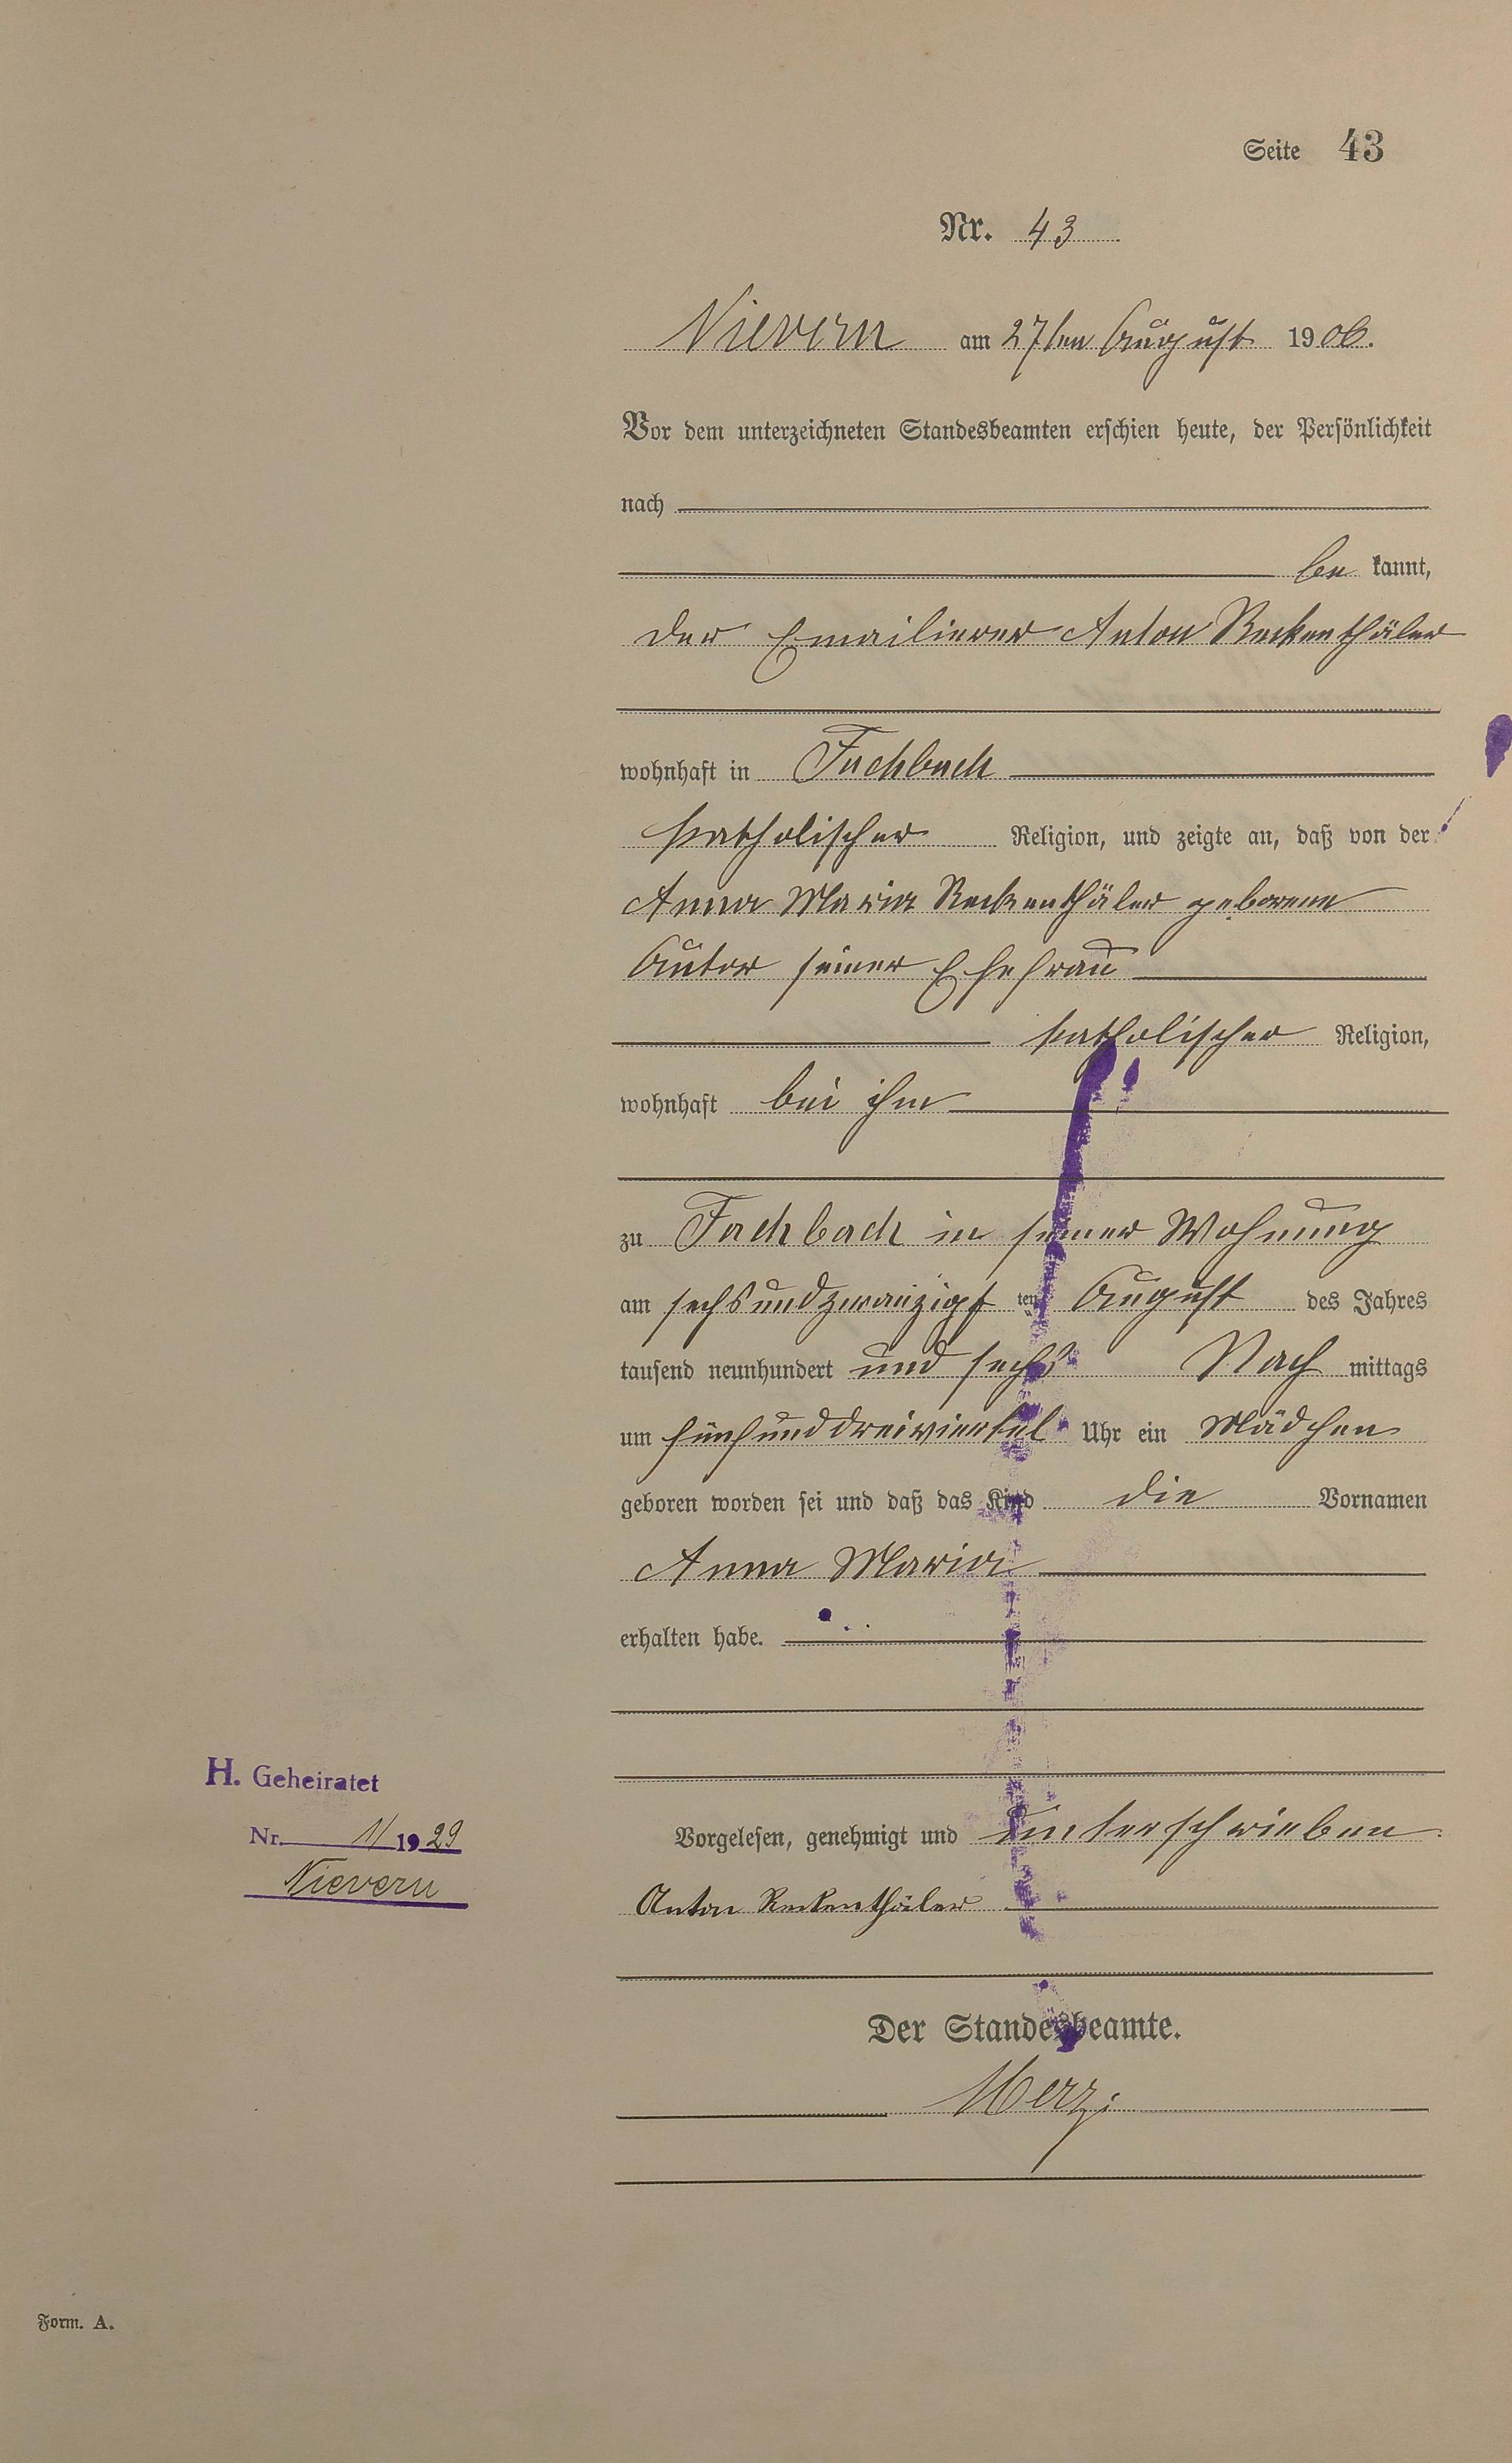 Seite 43
Nr. 43
Nievern am 27ten August 1906.
Vor dem unterzeichneten Standesbeamten erschien heute, der Persönlichkeit
nach
be kannt,
der Emailierer Anton Reckenthäler
wohnhaft in Fachbach
katholischer Religion, und zeigte an, daß von der
Anna Maria Reckenthäler geborene
seiner Ehefrau
katholischer Religion,
wohnhaft bei ihm
zu Fachbach in seiner Wohnung
am sechsundzwanzigs ten August des Jahres
tausend neunhundert und sechs Nach mittags
um fünfunddreiviertel Uhr ein Mädchen
geboren worden sei und daß das Kind die Vornamen
Anna Maria
erhalten habe.
H. Geheiratet
Nr. 11 1929
Nievern
Vorgelesen, genehmigt und unterschrieben
Anton Reckenthäler
Der Standesbeamte.
Merz.
Form. A.